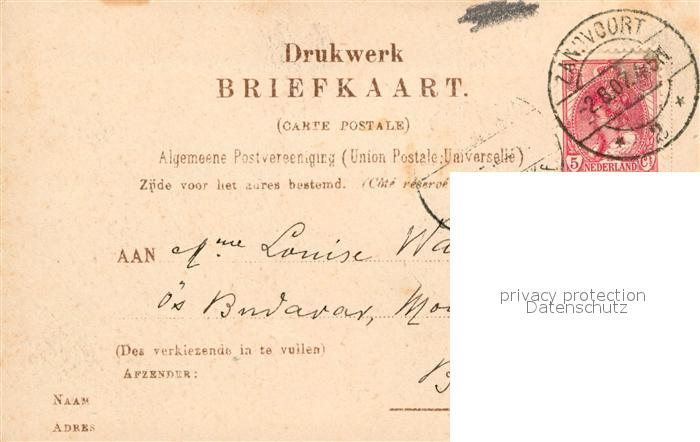 Drukwerk
BRIEFKAART.
(CARTE POSTALE)
Algemeene Postvereeniging (Union Postale Universelle)
Zijde voor het adres bestemd. (Côté réservé
ZANDVOORT
-2.8.07.
5 Ct
NEDERLAND
AAN Mme Louise Wa
ös Budavar, Mo
(Des verkiezende in te vullen)
AFZENDER:
NAAM
ADRES
privacy protection
Datenschutz